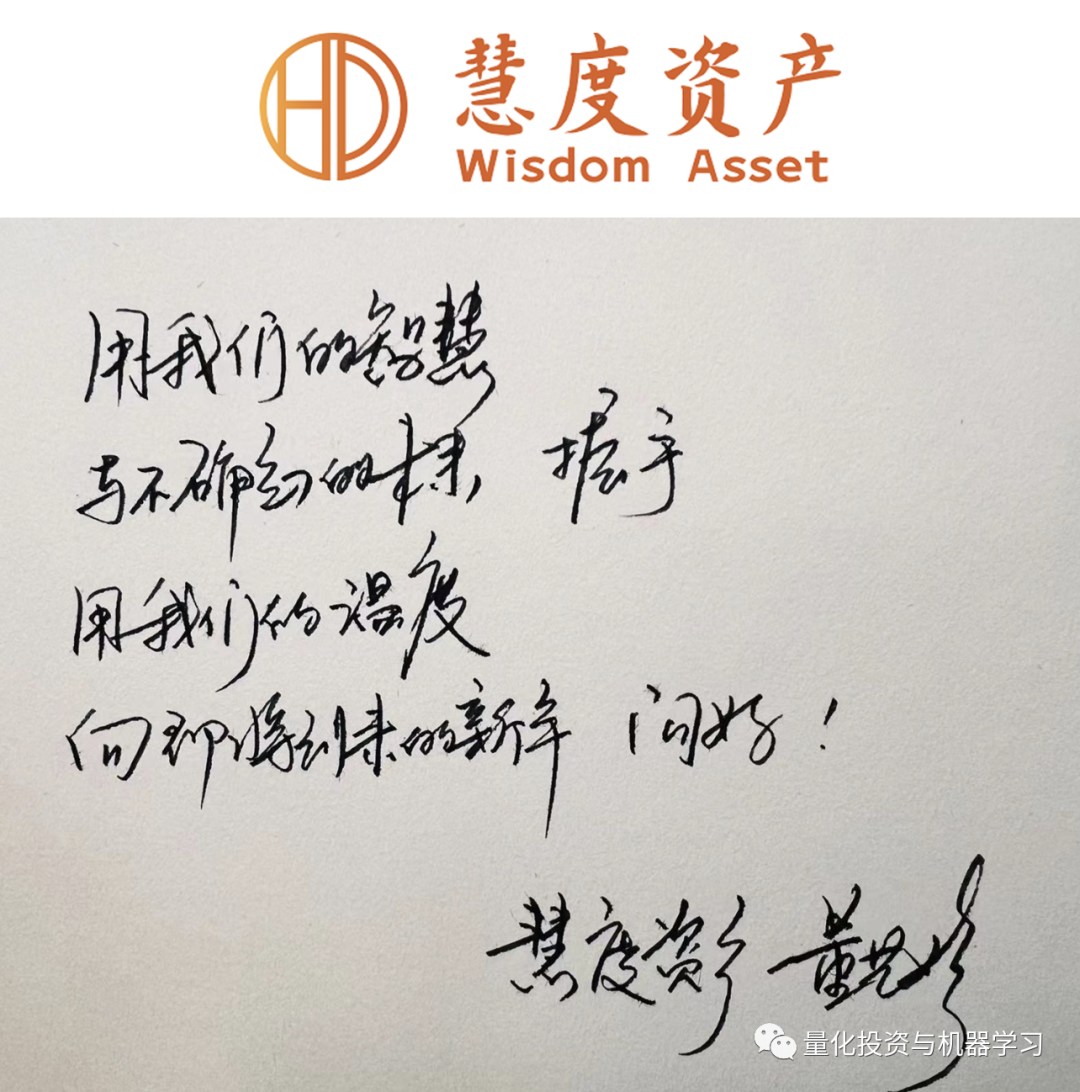 HD
慧度资产
Wisdom Asset
用我们的智慧
与不确幻的未来 握手
用我们的温度
向即将到来的新年 问好！
慧度资产 董
量化投资与机器学习